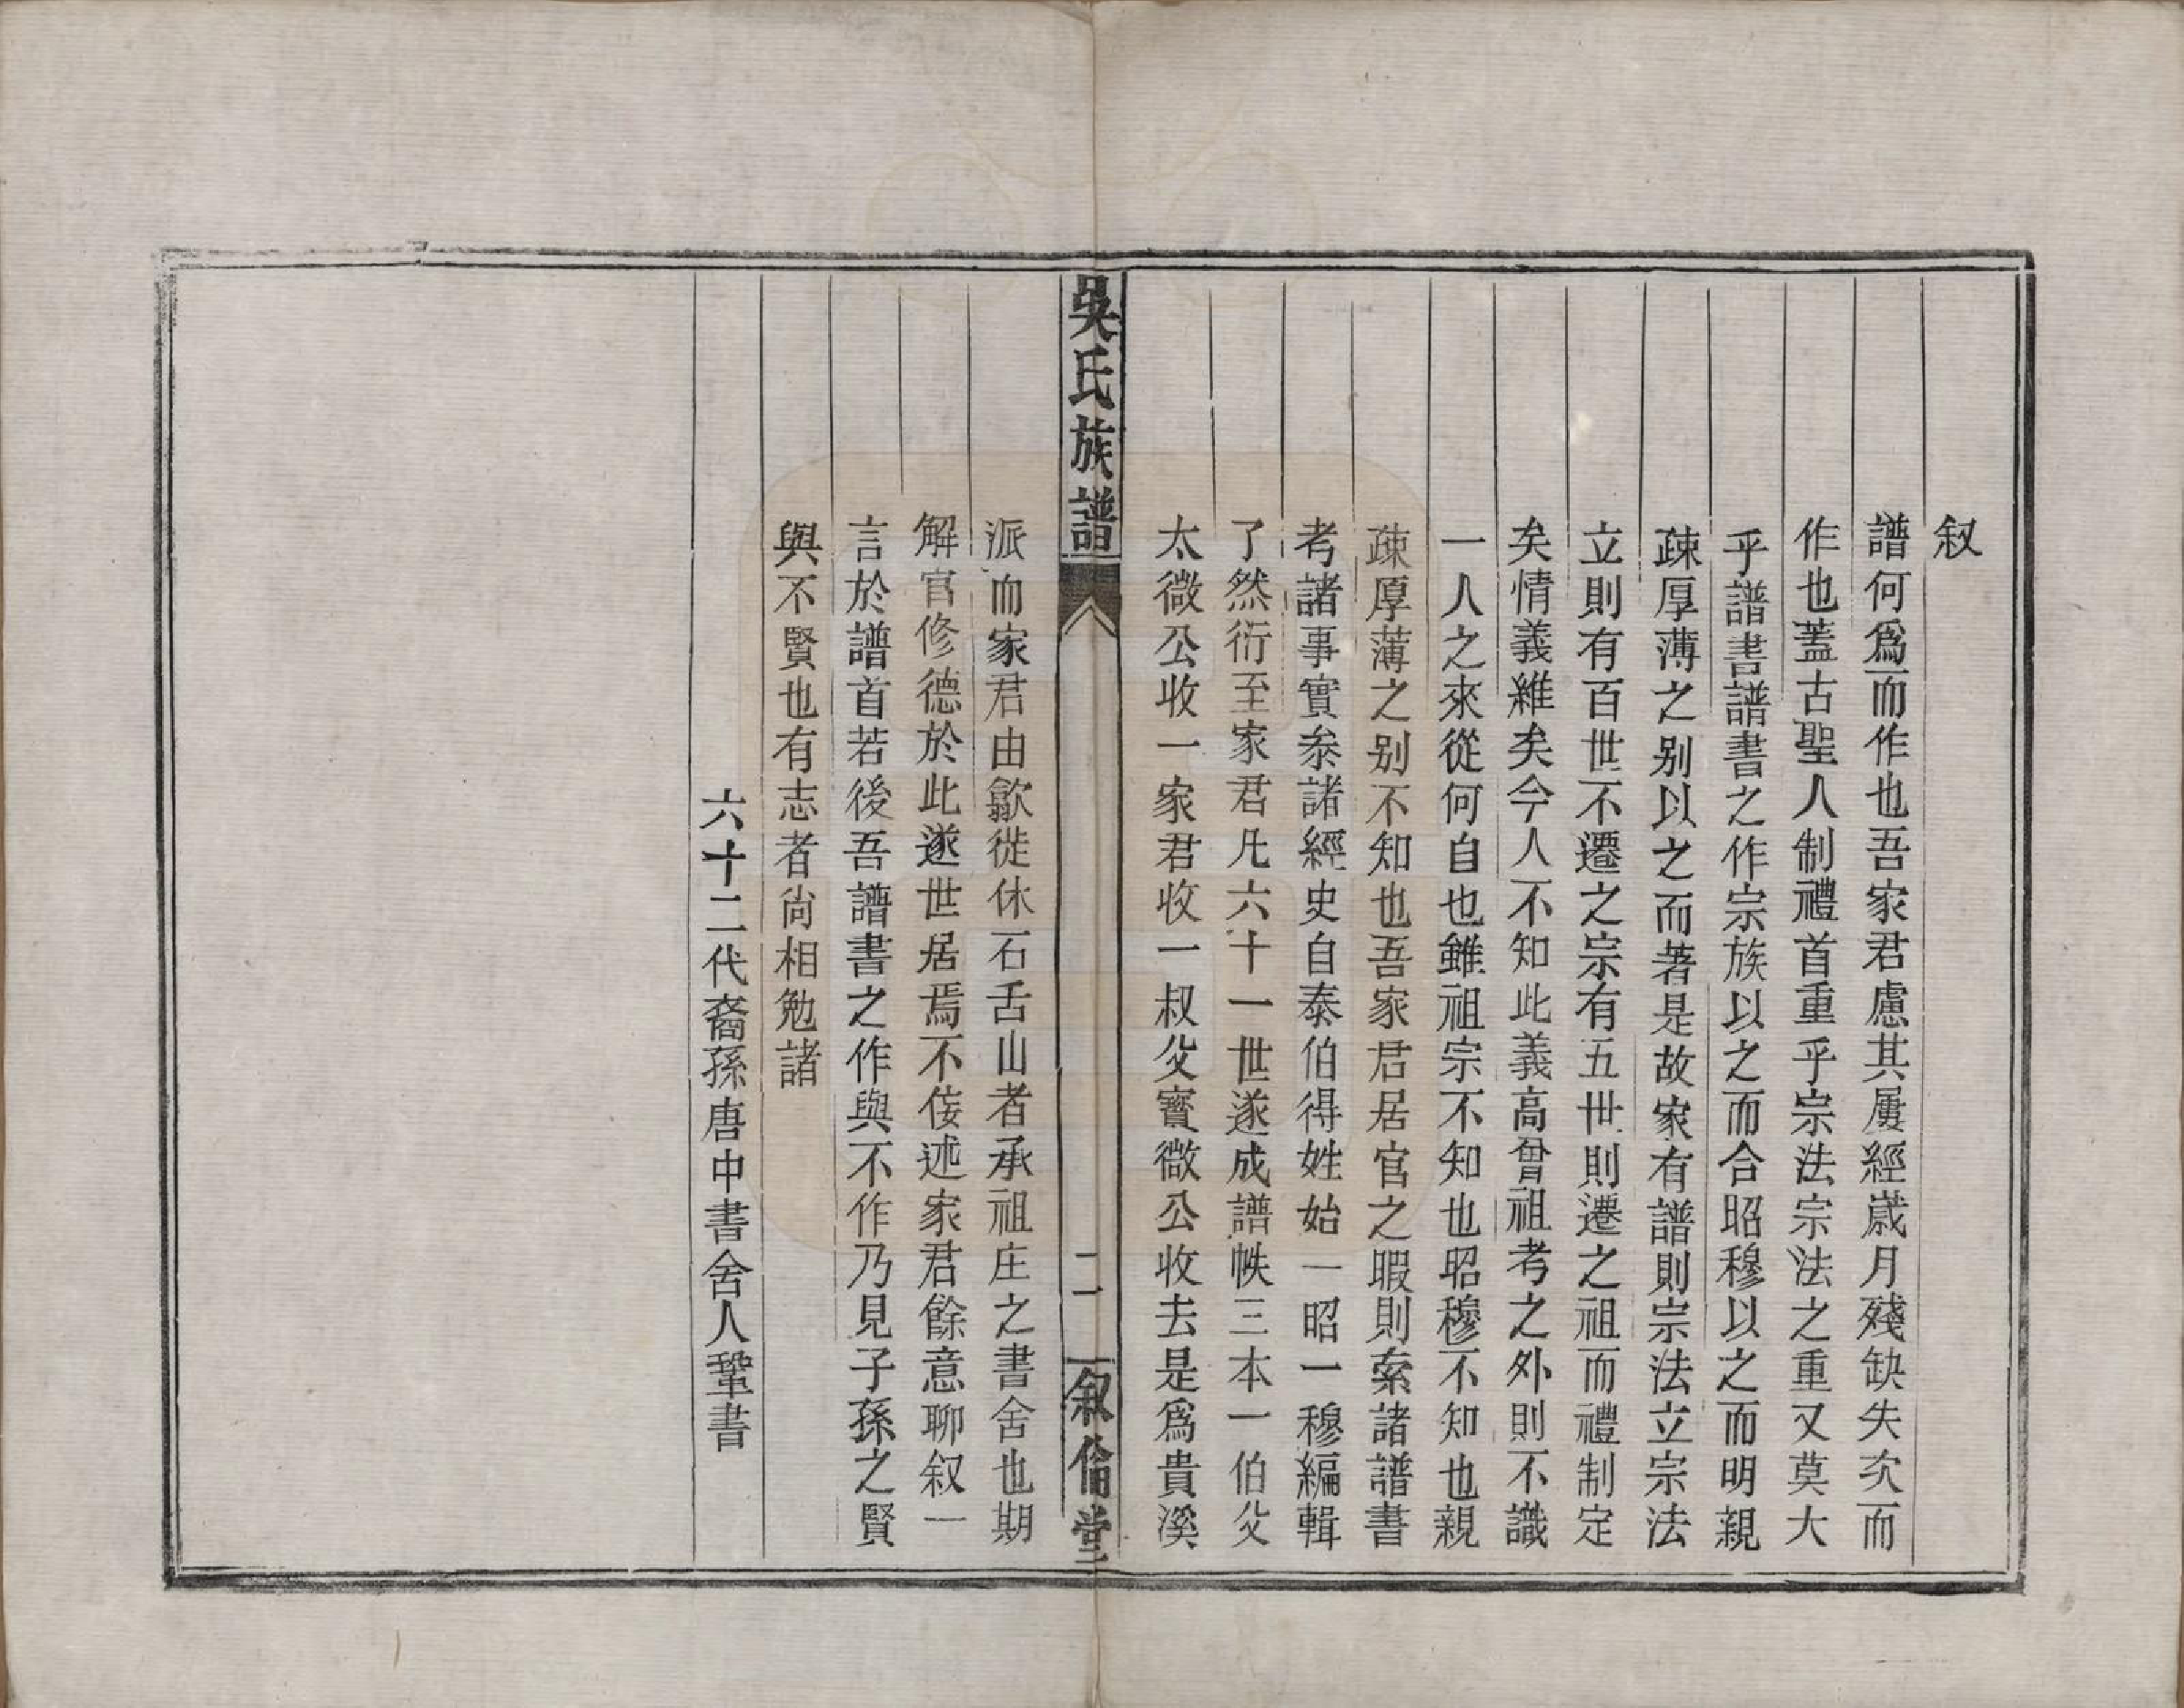 叙
譜何爲而作也吾家君慮其屢經歲月殘缺失次而
作也蓋古聖人制禮首重乎宗法宗法之重又莫大
乎譜書譜書之作宗族以之而合昭穆以之而明親
疎厚薄之别以之而著是故家有譜則宗法立宗法
立則有百世不遷之宗有五世則遷之祖而禮制定
矣情義維矣今人不知此義高曾祖考之外則不識
一人之來從何自也雖祖宗不知也昭穆不知也親
疎厚薄之别不知也吾家君居官之暇則索諸譜書
考諸事實叅諸經史自泰伯得姓始一昭一穆編輯
了然衍至家君凡六十一世遂成譜帙三本一伯父
太微公收一家君收一叔父寶微公收去是爲貴溪
吳氏族譜
二
叙倫堂
派而家君由歙徙休石舌山者承祖庄之書舍也期
解官修德於此遂世居焉不佞述家君餘意聊叙一
言於譜首若後吾譜書之作與不作乃見子孫之賢
與不賢也有志者尙相勉諸
六十二代裔孫唐中書舍人鞏書